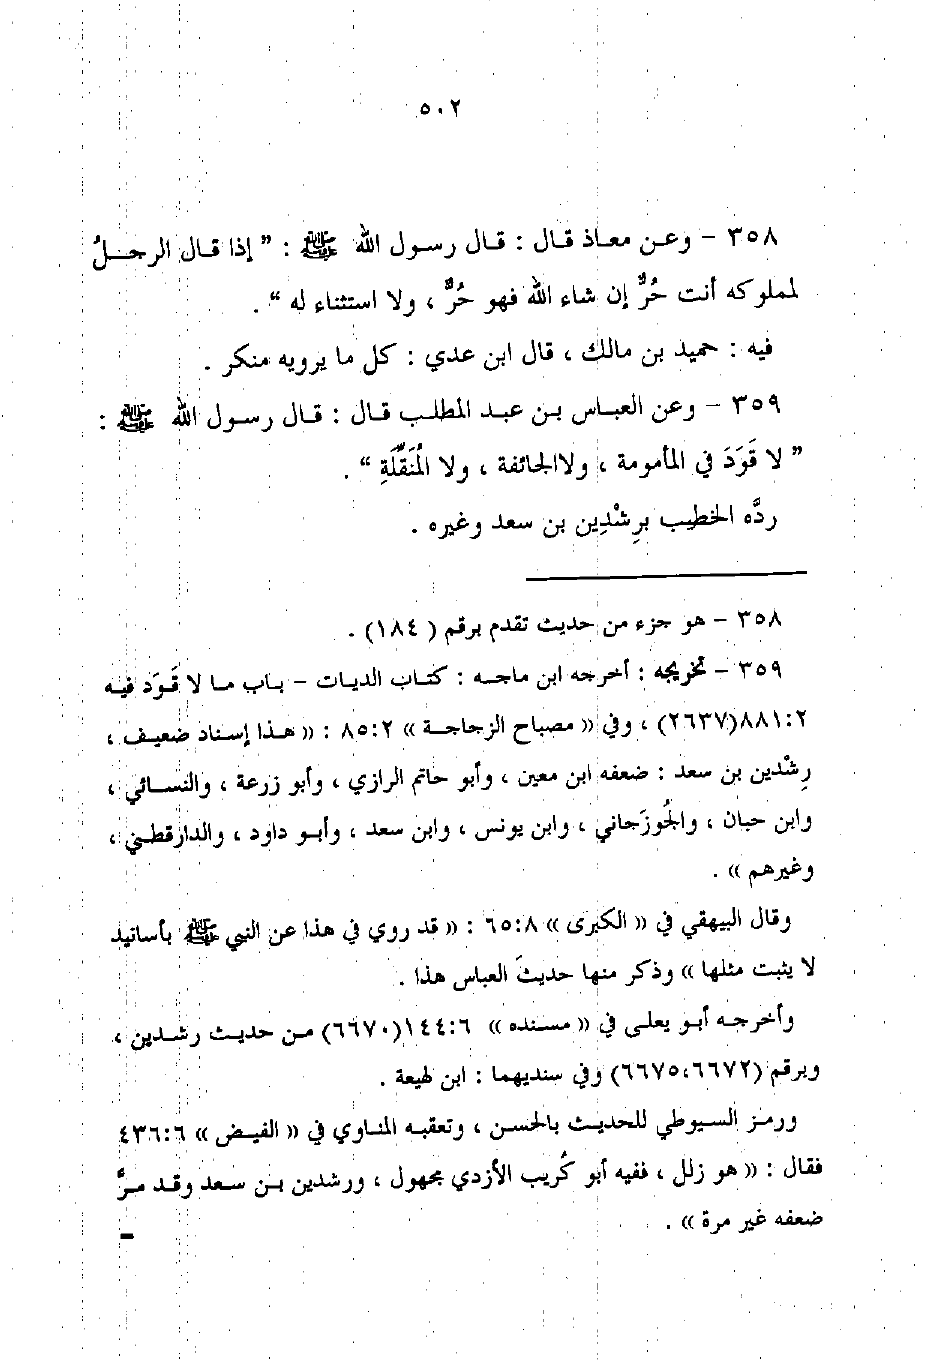 ٥٠٢
٣٥٨ - وعن معاذ قال : قال رسول الله ﷺ : " إذا قال الرجلُ
لمملوكه أنت حُرٌّ إن شاء الله فهو حُرٌّ ، ولا استثناء له " .
فيه : حميد بن مالك ، قال ابن عدي : كل ما يرويه منكر .
٣٥٩ - وعن العباس بن عبد المطلب قال : قال رسول الله ﷺ :
" لا قَوَدَ في المأمومة ، ولاالجائفة ، ولا المُنَقِّلَةِ " .
ردَّه الخطيب برِشْدِين بن سعد وغيره .
٣٥٨ - هو جزء من حديث تقدم برقم ( ١٨٤) .
٣٥٩ - تخريجه : أخرجه ابن ماجه : كتاب الديات - باب ما لا قَوَد فيه
٨٨١:٢(٢٦٣٧) ، وفي « مصباح الزجاجة » ٨٥:٢ : « هذا إسناد ضعيف ،
رِشْدين بن سعد : ضعفه ابن معين ، وأبو حاتم الرازي ، وأبو زرعة ، والنسائي ،
وابن حبان ، والجُوزَجاني ، وابن يونس ، وابن سعد ، وأبو داود ، والدارقطني ،
وغيرهم » .
وقال البيهقي في « الكبرى » ٦٥:٨ : « قد روي في هذا عن النبي ﷺ بأسانيد
لا يثبت مثلها » وذكر منها حديثَ العباس هذا .
وأخرجه أبو يعلى في « مسنده » ١٤٤:٦(٦٦٧٠) من حديث رشدين ،
وبرقم (٦٦٧٥،٦٦٧٢) وفي سنديهما : ابن لهيعة .
ورمز السيوطي للحديث بالحسن ، وتعقبه المناوي في « الفيض » ٤٣٦:٦
فقال : « هو زلل ، ففيه أبو كُريب الأزدي مجهول ، ورشدين بن سعد وقد مرَّ
ضعفه غير مرة » .